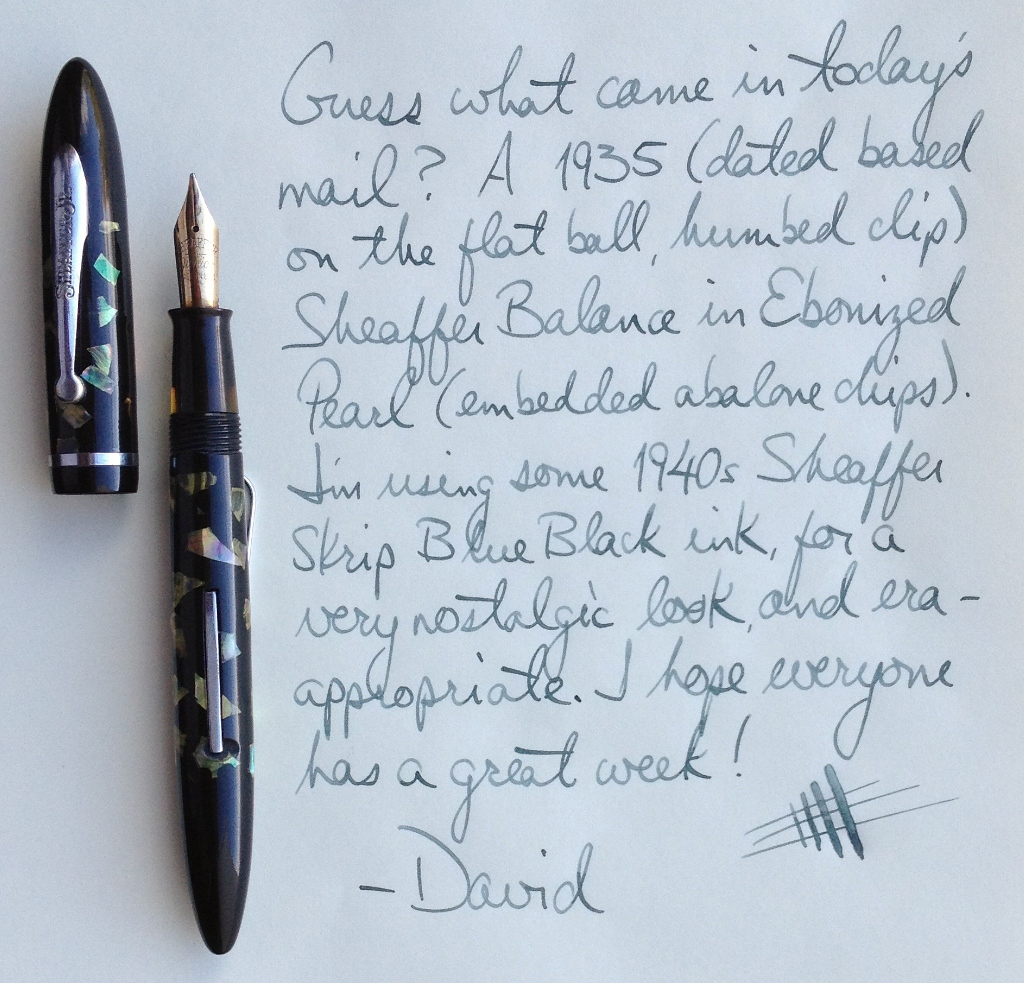 Guess what came in today's
mail? A 1935 (dated based
on the flat ball, humbed clip)
Sheaffer Balance in Ebonized
Pearl (embedded abalone chips).
I'm using some 1940s Sheaffer
Skrip Blue Black ink, for a
very nostalgic look, and era-
appropriate. I hope everyone
has a great week!
-David